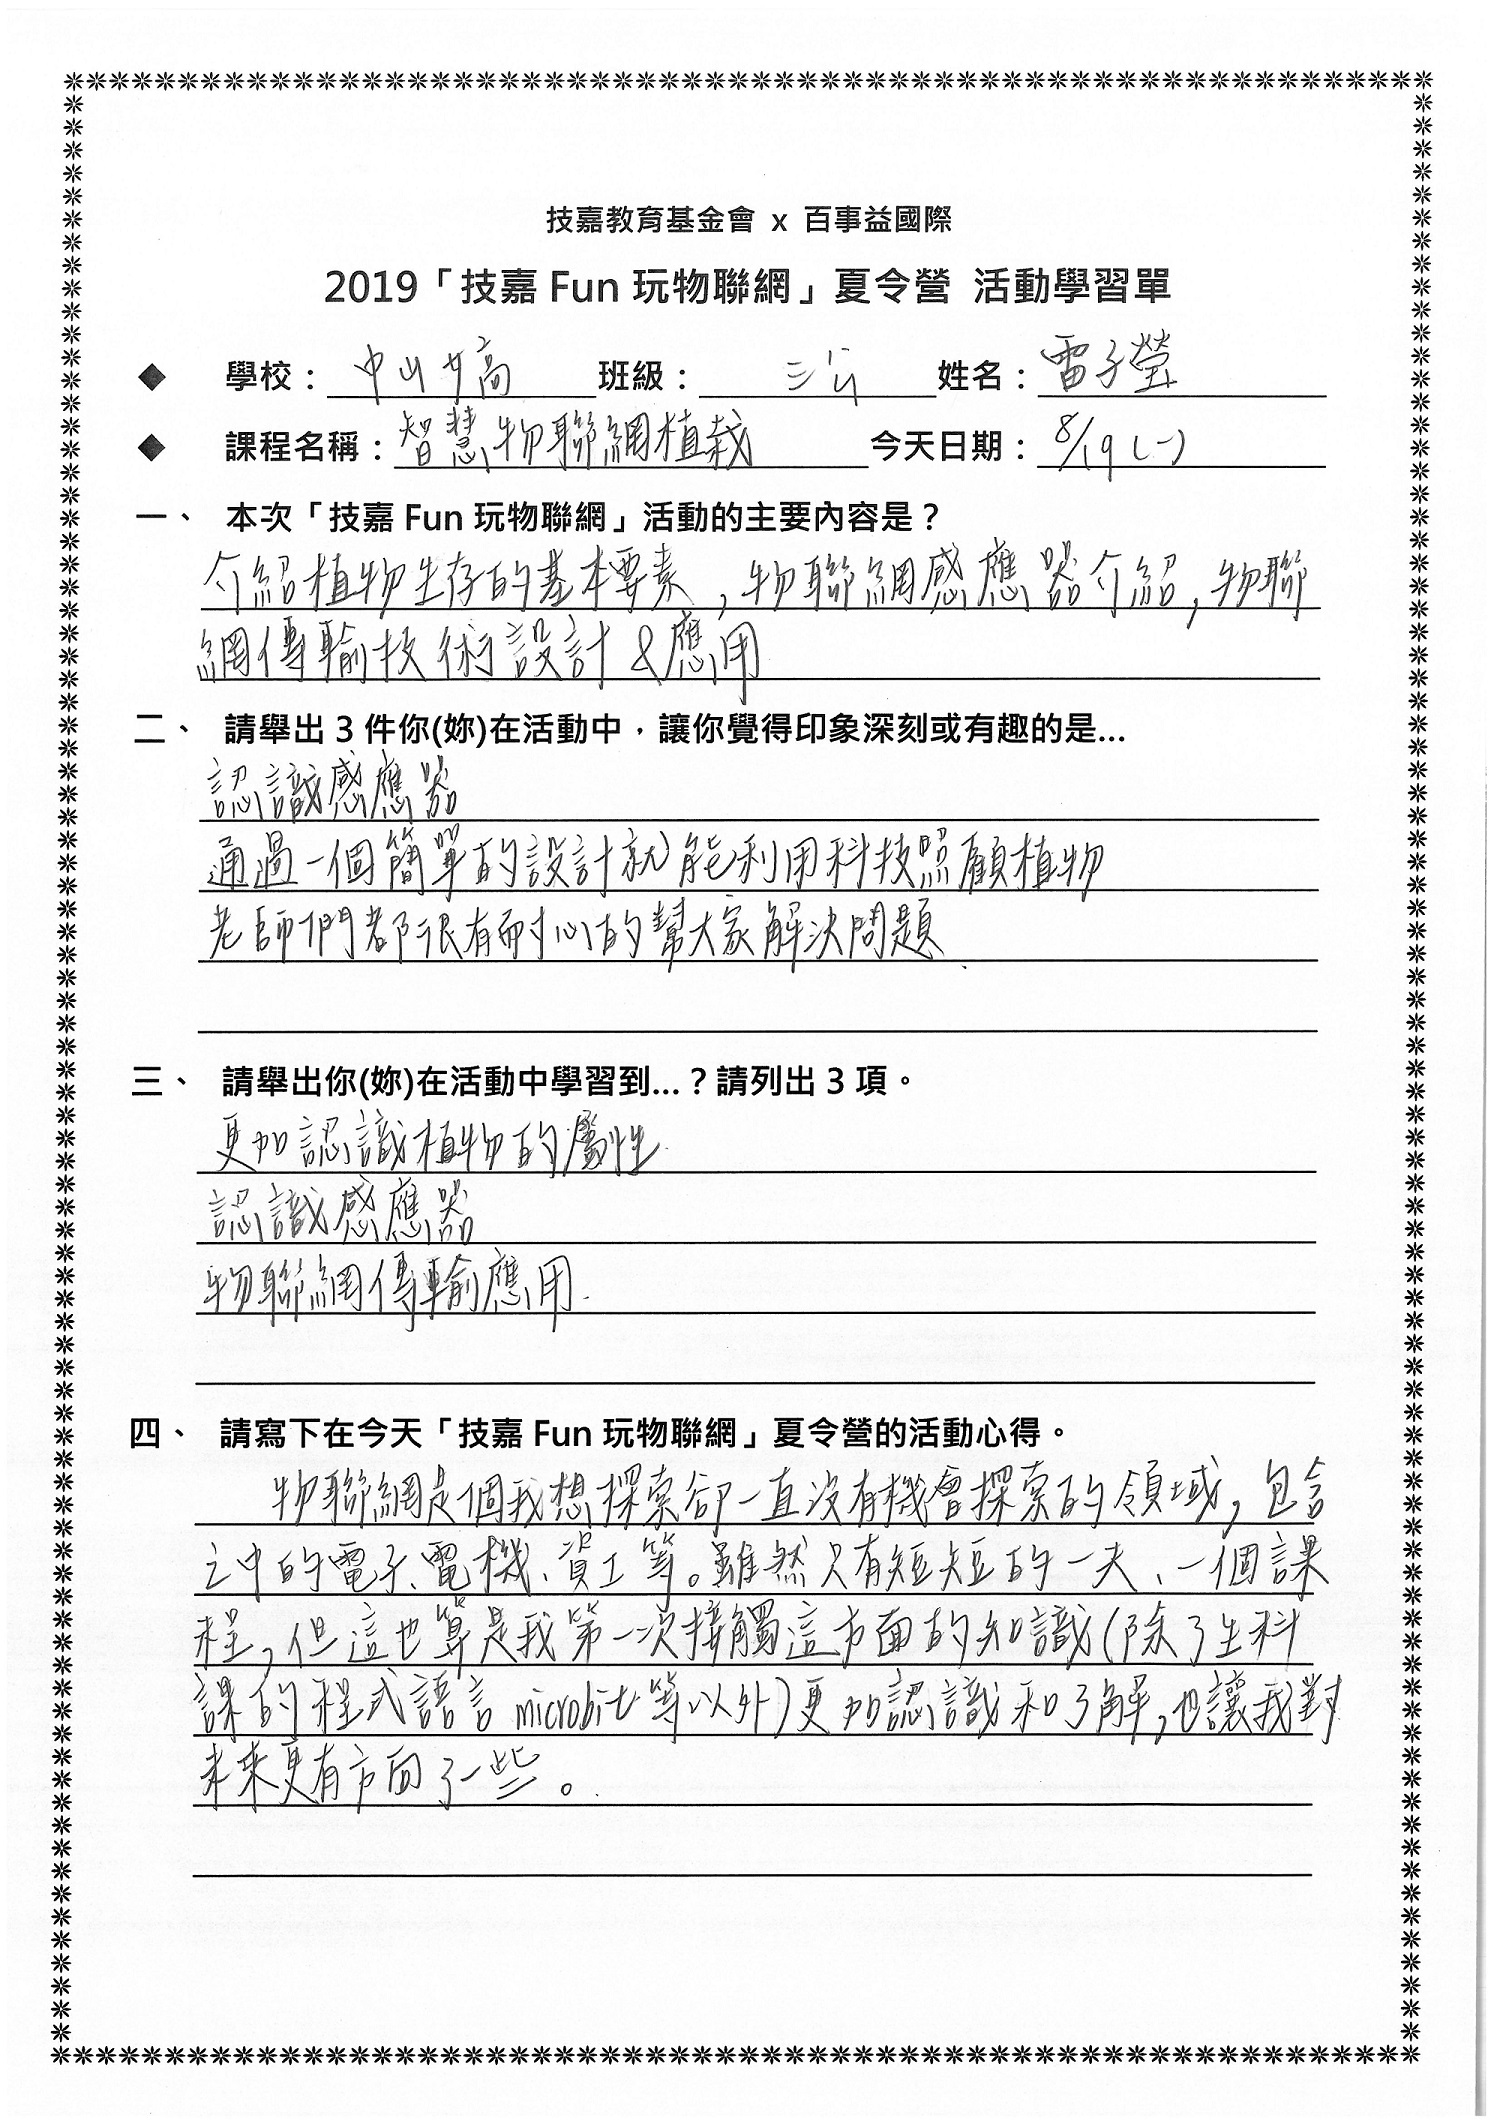 技嘉教育基金會 x 百事益國際
2019「技嘉 Fun 玩物聯網」夏令營 活動學習單
◆ 學校：中山女高 班級：三公 姓名：雷子瑩
◆ 課程名稱：智慧物聯網植栽 今天日期：8/19(一)
一、 本次「技嘉 Fun 玩物聯網」活動的主要內容是？
介紹植物生存的基本要素，物聯網感應器介紹，物聯
網傳輸技術設計&應用
二、 請舉出 3 件你(妳)在活動中，讓你覺得印象深刻或有趣的是...
認識感應器
通過一個簡單的設計就能利用科技照顧植物
老師們都很有耐心的幫大家解決問題
三、 請舉出你(妳)在活動中學習到...？請列出 3 項。
更加認識植物的屬性
認識感應器
物聯網傳輸應用
四、 請寫下在今天「技嘉 Fun 玩物聯網」夏令營的活動心得。
物聯網是個我想探索卻一直沒有機會探索的領域，包含
之中的電子、電機、資工等。雖然只有短短的一天、一個課
程，但這也算是我第一次接觸這方面的知識(除了生科
課的程式語言microbit等以外)更加認識和了解，也讓我對
未來更有方面了一些。